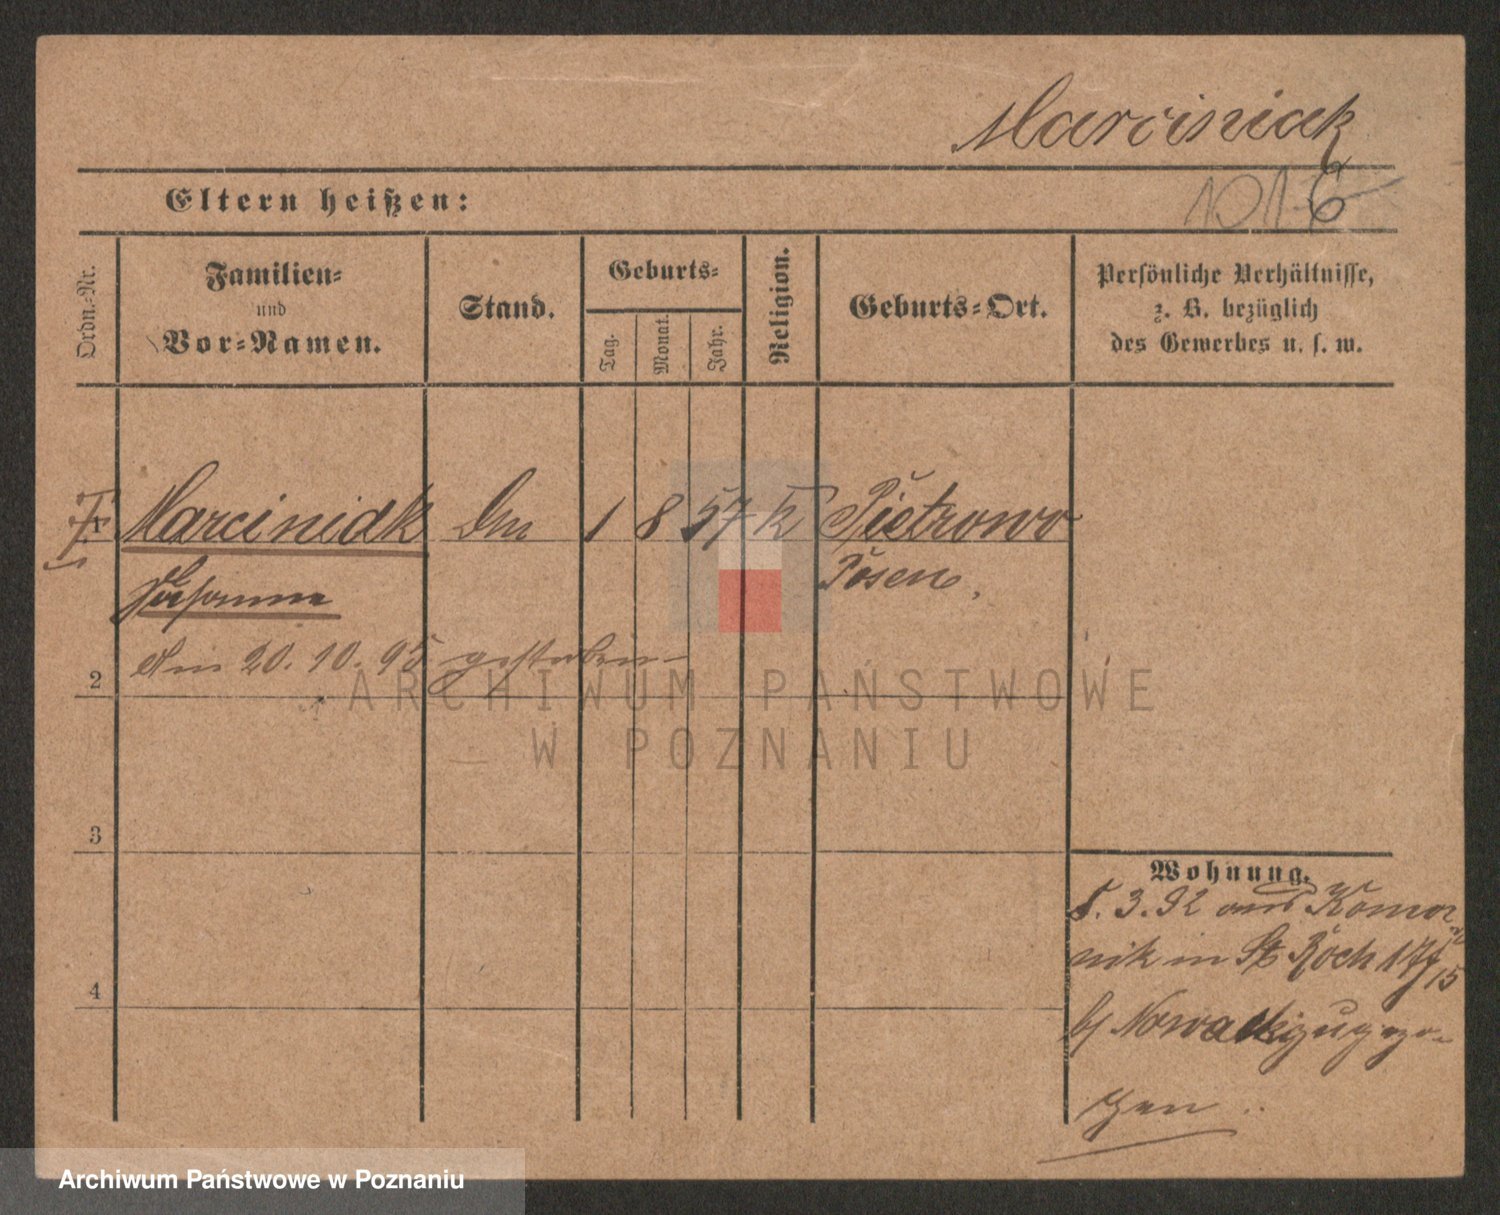 Marciniak
Eltern heißen:
101 6
Ordn.-Nr.
Familien-
und
Vor-Namen.
Stand.
Geburts-
Tag.
Monat.
Jahr.
Religion.
Geburts-Ort.
Persönliche Verhältnisse,
z. B. bezüglich
des Gewerbes u. s. w.
1 Marciniak 1 8 57 k Pietrowo
Posen,
2 20. 10. 95 gestorben
3
4
Wohnung.
5. 3. 92 aus Komor
nik in St Roch 17/15
b/ Nowacki zugezo-
gen
ARCHIWUM PAŃSTWOWE
W POZNANIU
Archiwum Państwowe w Poznaniu